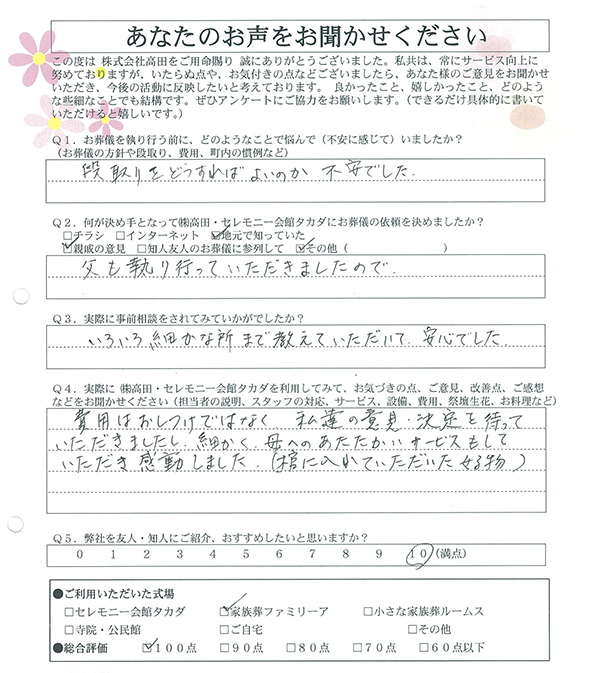 あなたのお声をお聞かせください
この度は 株式会社高田をご用命賜り 誠にありがとうございました。私共は、常にサービス向上に
努めておりますが、いたらぬ点や、お気付きの点などございましたら、あなた様のご意見をお聞かせ
いただき、今後の活動に反映したいと考えております。 良かったこと、嬉しかったこと、どのよう
な些細なことでも結構です。ぜひアンケートにご協力をお願いします。（できるだけ具体的に書いて
いただけると嬉しいです。）
Ｑ１．お葬儀を執り行う前に、どのようなことで悩んで（不安に感じて）いましたか？
（お葬儀の方針や段取り、費用、町内の慣例など）
段取りをどうすればよいのか 不安でした．
Ｑ２．何が決め手となって㈱高田・セレモニー会館タカダにお葬儀の依頼を決めましたか？
□チラシ □インターネット ☑地元で知っていた
☑親戚の意見 □知人友人のお葬儀に参列して ☑その他（ ）
父も執り行っていただきましたので．
Ｑ３．実際に事前相談をされてみていかがでしたか？
いろいろ細かな所まで教えていただいて、安心でした．
Ｑ４．実際に ㈱高田・セレモニー会館タカダを利用してみて、お気づきの点、ご意見、改善点、ご感想
などをお聞かせください（担当者の説明、スタッフの対応、サービス、設備、費用、祭壇生花、お料理など）
費用はおしつけではなく 私達の意見・決定を待って
いただきましたし．細かく、母へのあたたかいサービスもして
いただき 感動しました．（棺に入れていただいた好物 ）
Ｑ５．弊社を友人・知人にご紹介、おすすめしたいと思いますか？
０ １ ２ ３ ４ ５ ６ ７ ８ ９ １０（満点）
●ご利用いただいた式場
□セレモニー会館タカダ ☑家族葬ファミリーア □小さな家族葬ルームス
□寺院・公民館 □ご自宅 □その他
●総合評価 ☑１００点 □９０点 □８０点 □７０点 □６０点以下